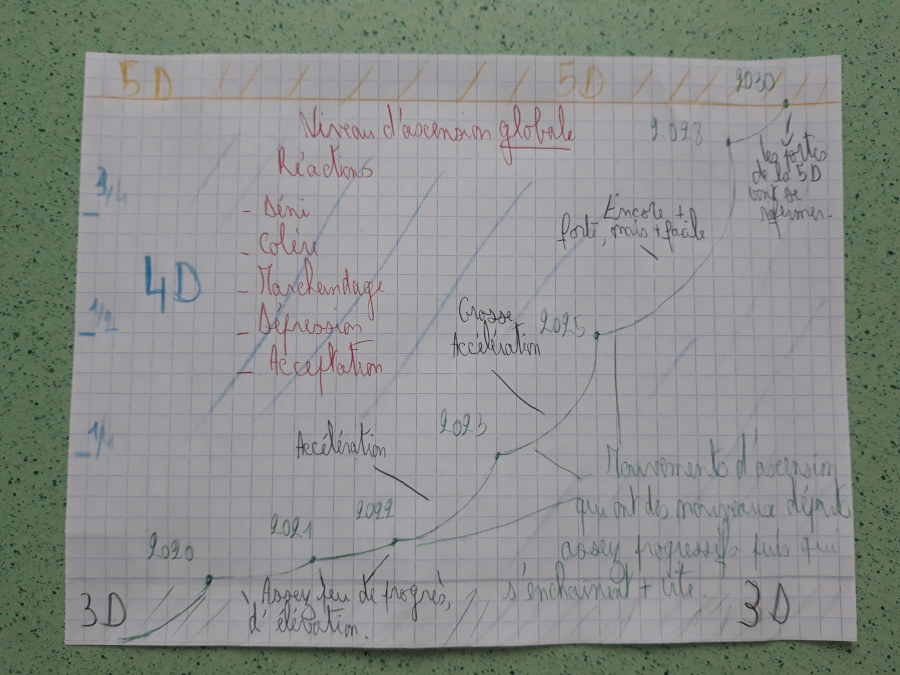 5D
5D
2030
Niveau d'ascension globale
2028
les portes
de la 5D
vont se
refermer.
Réactions
3/4
- Déni
- Colère
- Marchandage
- Dépression
- Acceptation
4D
1/2
1/4
Encore +
forte, mais + facile
Grosse
Accélération
2025
2023
Accélération
Mouvements d'ascension
qui ont des nouveaux départs
assez progressifs puis qui
s'enchaînent + vite.
2022
2021
2020
Assez peu de progrès,
d'élévation.
3D
3D